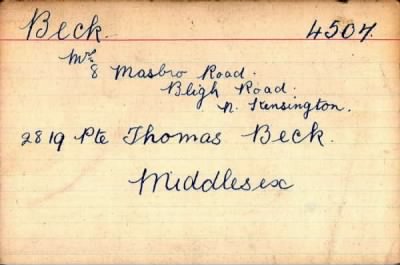 Beck. 4507.
Mrs
8 Masbro Road.
Bligh Road.
N. Kensington.
2819 Pte Thomas Beck.
Middlesex